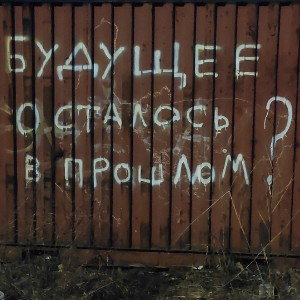 БУДУЩЕЕ
ОСТАЛОСЬ
В ПРОШЛОМ?